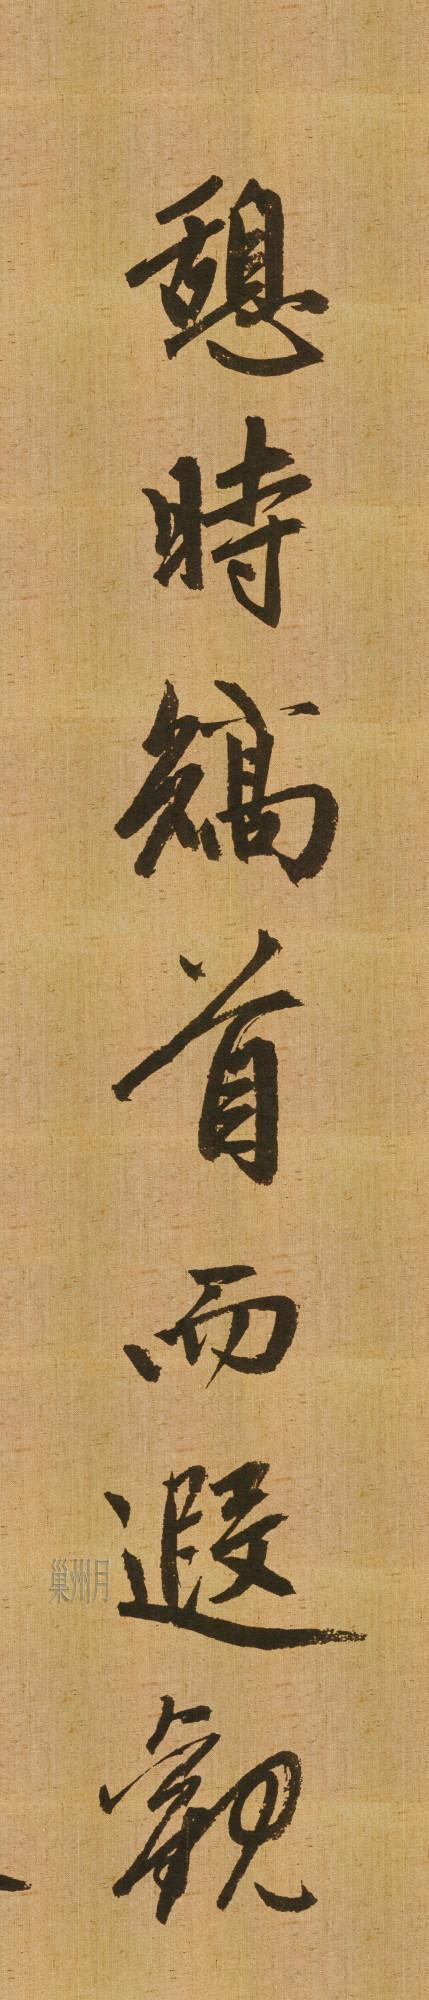 憩時矯首而遐觀
巢州月